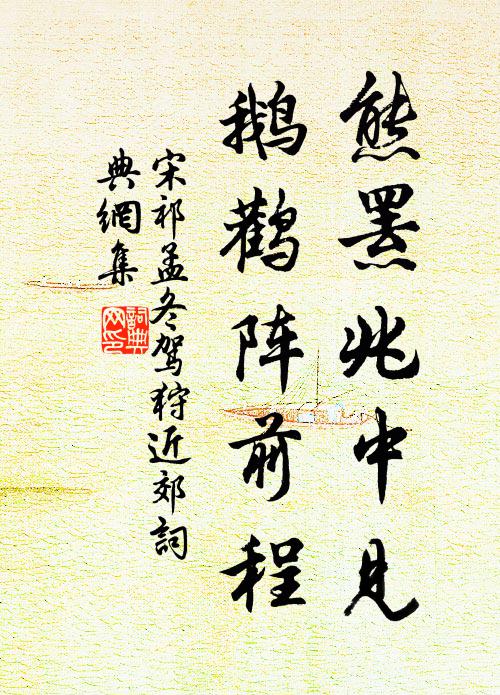 熊罴兆中见
鹅鹳阵前程
宋祁孟冬驾狩近郊词
典網集
詞典
网印